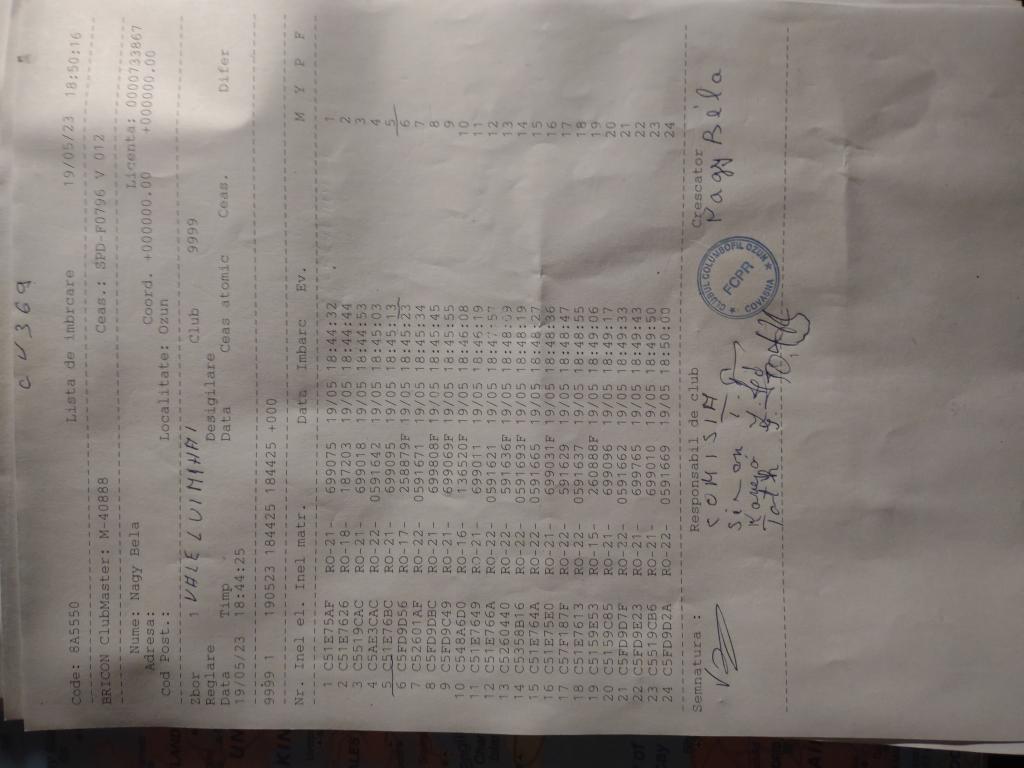 C V 369
Code: 8A5550 Lista de imbrcare 19/05/23 18:50:16
BRICON ClubMaster: M-40888 Ceas.: SPD-F0796 V 012
Nume: Nagy Bela Licenta: 0000733867
Adresa: Coord. +000000.00 +000000.00
Cod Post.: Localitate: Ozun
Zbor 1 VALE LUI MIHAI Club 9999
Reglare Desigilare
Data Timp Data Ceas atomic Ceas. Difer
19/05/23 18:44:25
9999 1 190523 184425 184425 +000
Nr. Inel el. Inel matr. Data Imbarc Ev. M Y P F
1 C51E75AF RO-21- 699075 19/05 18:44:32 1
2 C51E7626 RO-18- 187203 19/05 18:44:44 2
3 C5519CAC RO-21- 699018 19/05 18:44:53 3
4 C5AE3CAC RO-22- 0591642 19/05 18:45:03 4
5 C51E76BC RO-21- 699095 19/05 18:45:13 5
6 C5FD9D56 RO-17- 258879F 19/05 18:45:23 6
7 C52601AF RO-22- 0591671 19/05 18:45:34 7
8 C5FD9DBC RO-21- 699808F 19/05 18:45:45 8
9 C5FD9C49 RO-21- 699069F 19/05 18:45:55 9
10 C548A6D0 RO-16- 136520F 19/05 18:46:08 10
11 C51E7649 RO-21- 699011 19/05 18:46:19 11
12 C51E766A RO-22- 0591621 19/05 18:47:57 12
13 C5260440 RO-22- 591636F 19/05 18:48:09 13
14 C5358B16 RO-22- 0591693F 19/05 18:48:19 14
15 C51E764A RO-22- 0591665 19/05 18:48:27 15
16 C51E75E0 RO-21- 699031F 19/05 18:48:36 16
17 C57F187F RO-22- 591629 19/05 18:48:47 17
18 C51E7613 RO-22- 0591637 19/05 18:48:55 18
19 C5159E53 RO-15- 260888F 19/05 18:49:06 19
20 C5159C85 RO-21- 699096 19/05 18:49:17 20
21 C5FD9D7F RO-22- 0591662 19/05 18:49:33 21
22 C5FD9E23 RO-21- 699765 19/05 18:49:43 22
23 C5519CB6 RO-21- 699010 19/05 18:49:50 23
24 C5FD9D2A RO-22- 0591669 19/05 18:50:00 24
Semnatura : Responsabil de club Crescator
COMISIA Nagy Béla
Simon
CLUBUL COLUMBOFIL OZUN
FCPR
COVASNA